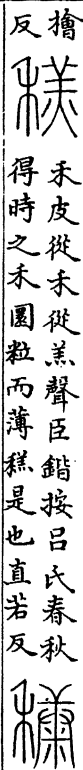 檜
反
䅵
禾皮從禾從羔聲臣鍇按呂氏春秋
得時之禾圜粒而薄糕是也直若反
穅